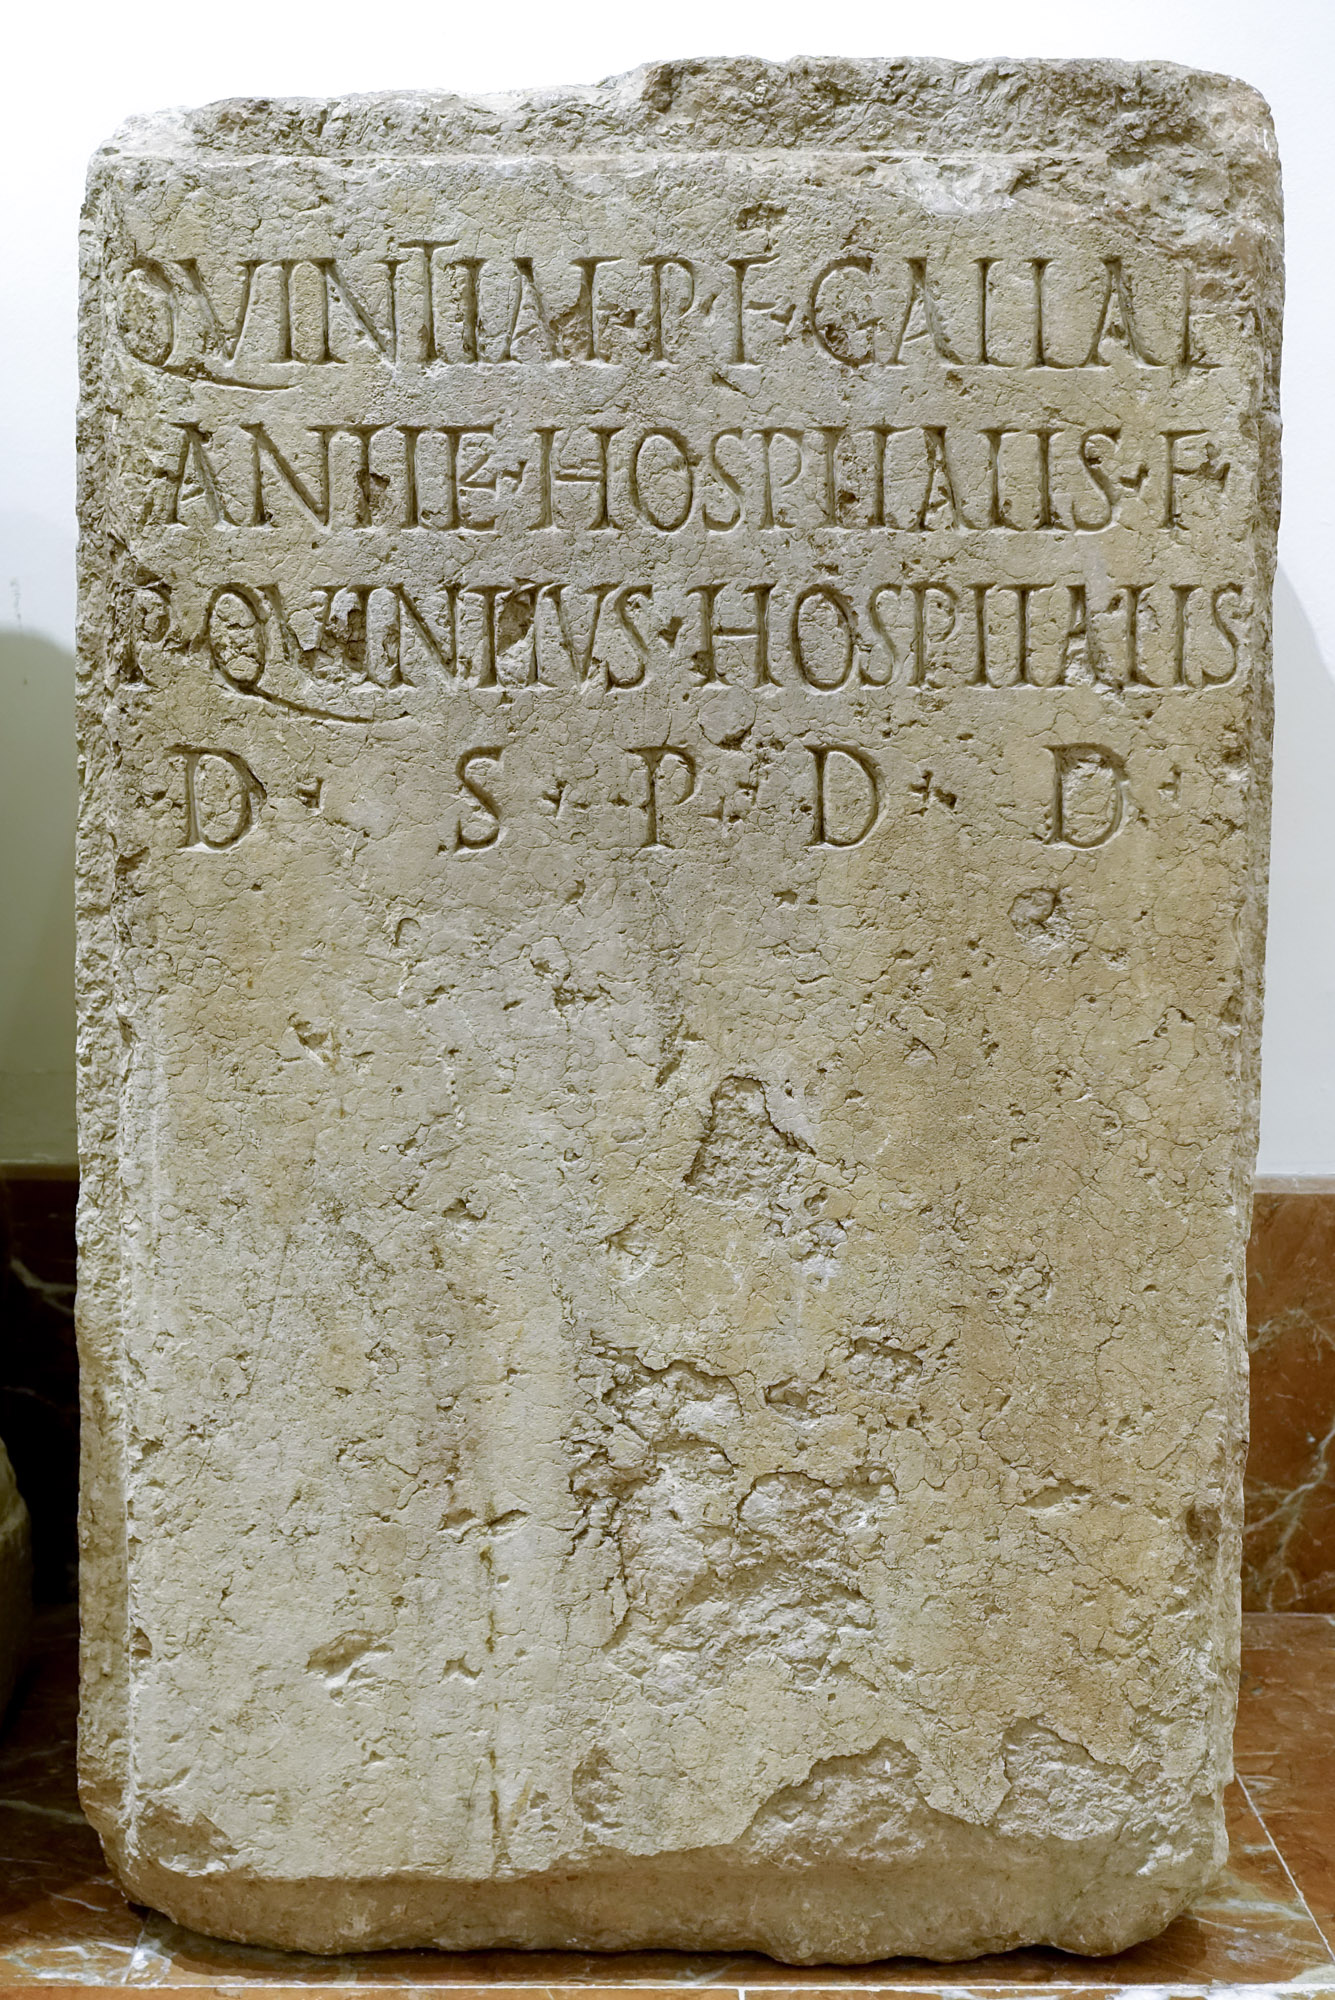 QVINTIAE · P · F · GALLAE
HOSPITALIS · F ·
P QVINTIVS · HOSPITALIS
D · S · P · D · D ·